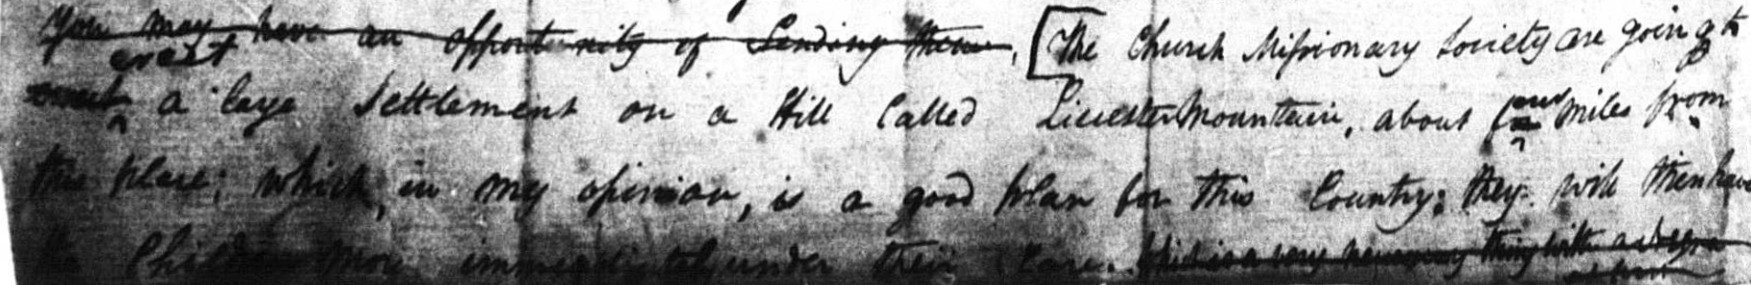 you may have an opportunity of Sending them. [The Church Missionary Society are going to
erect a large Settlement on a Hill Called Liecester Mountain, about four miles from
this place; which, in my opinion, is a good plan for this Country; they will then have
the Children more immediately under their Care. which is a very necessary thing with